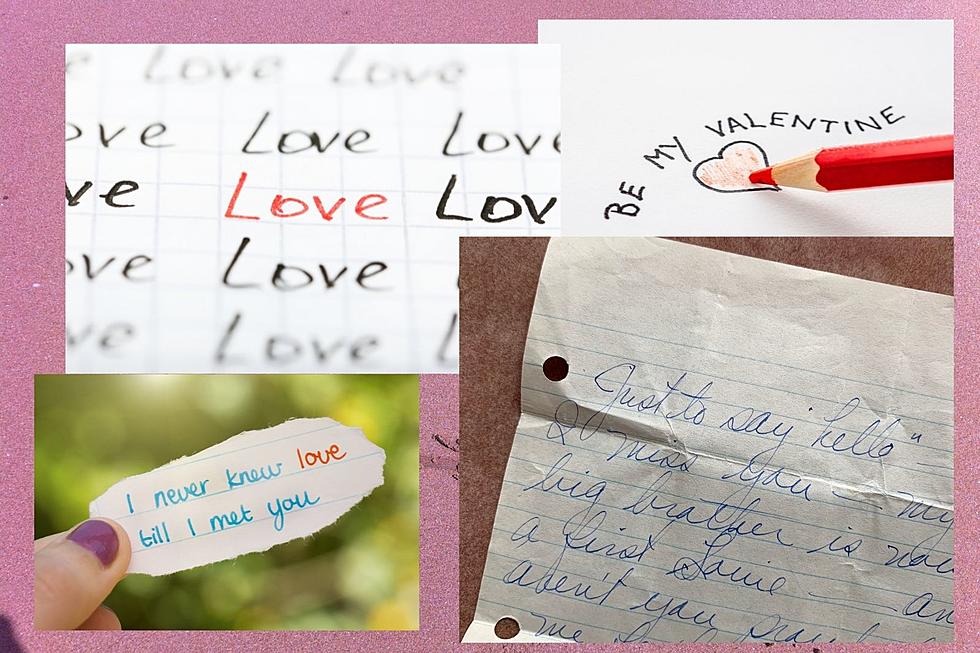 e Love Love
ove Love Love
ve Love Lov
ove Love
ve Love
BE MY VALENTINE
I never knew love
till I met you
Just to say hello"
I miss you - my
big brother is now
a first — an
aren't you proud
me